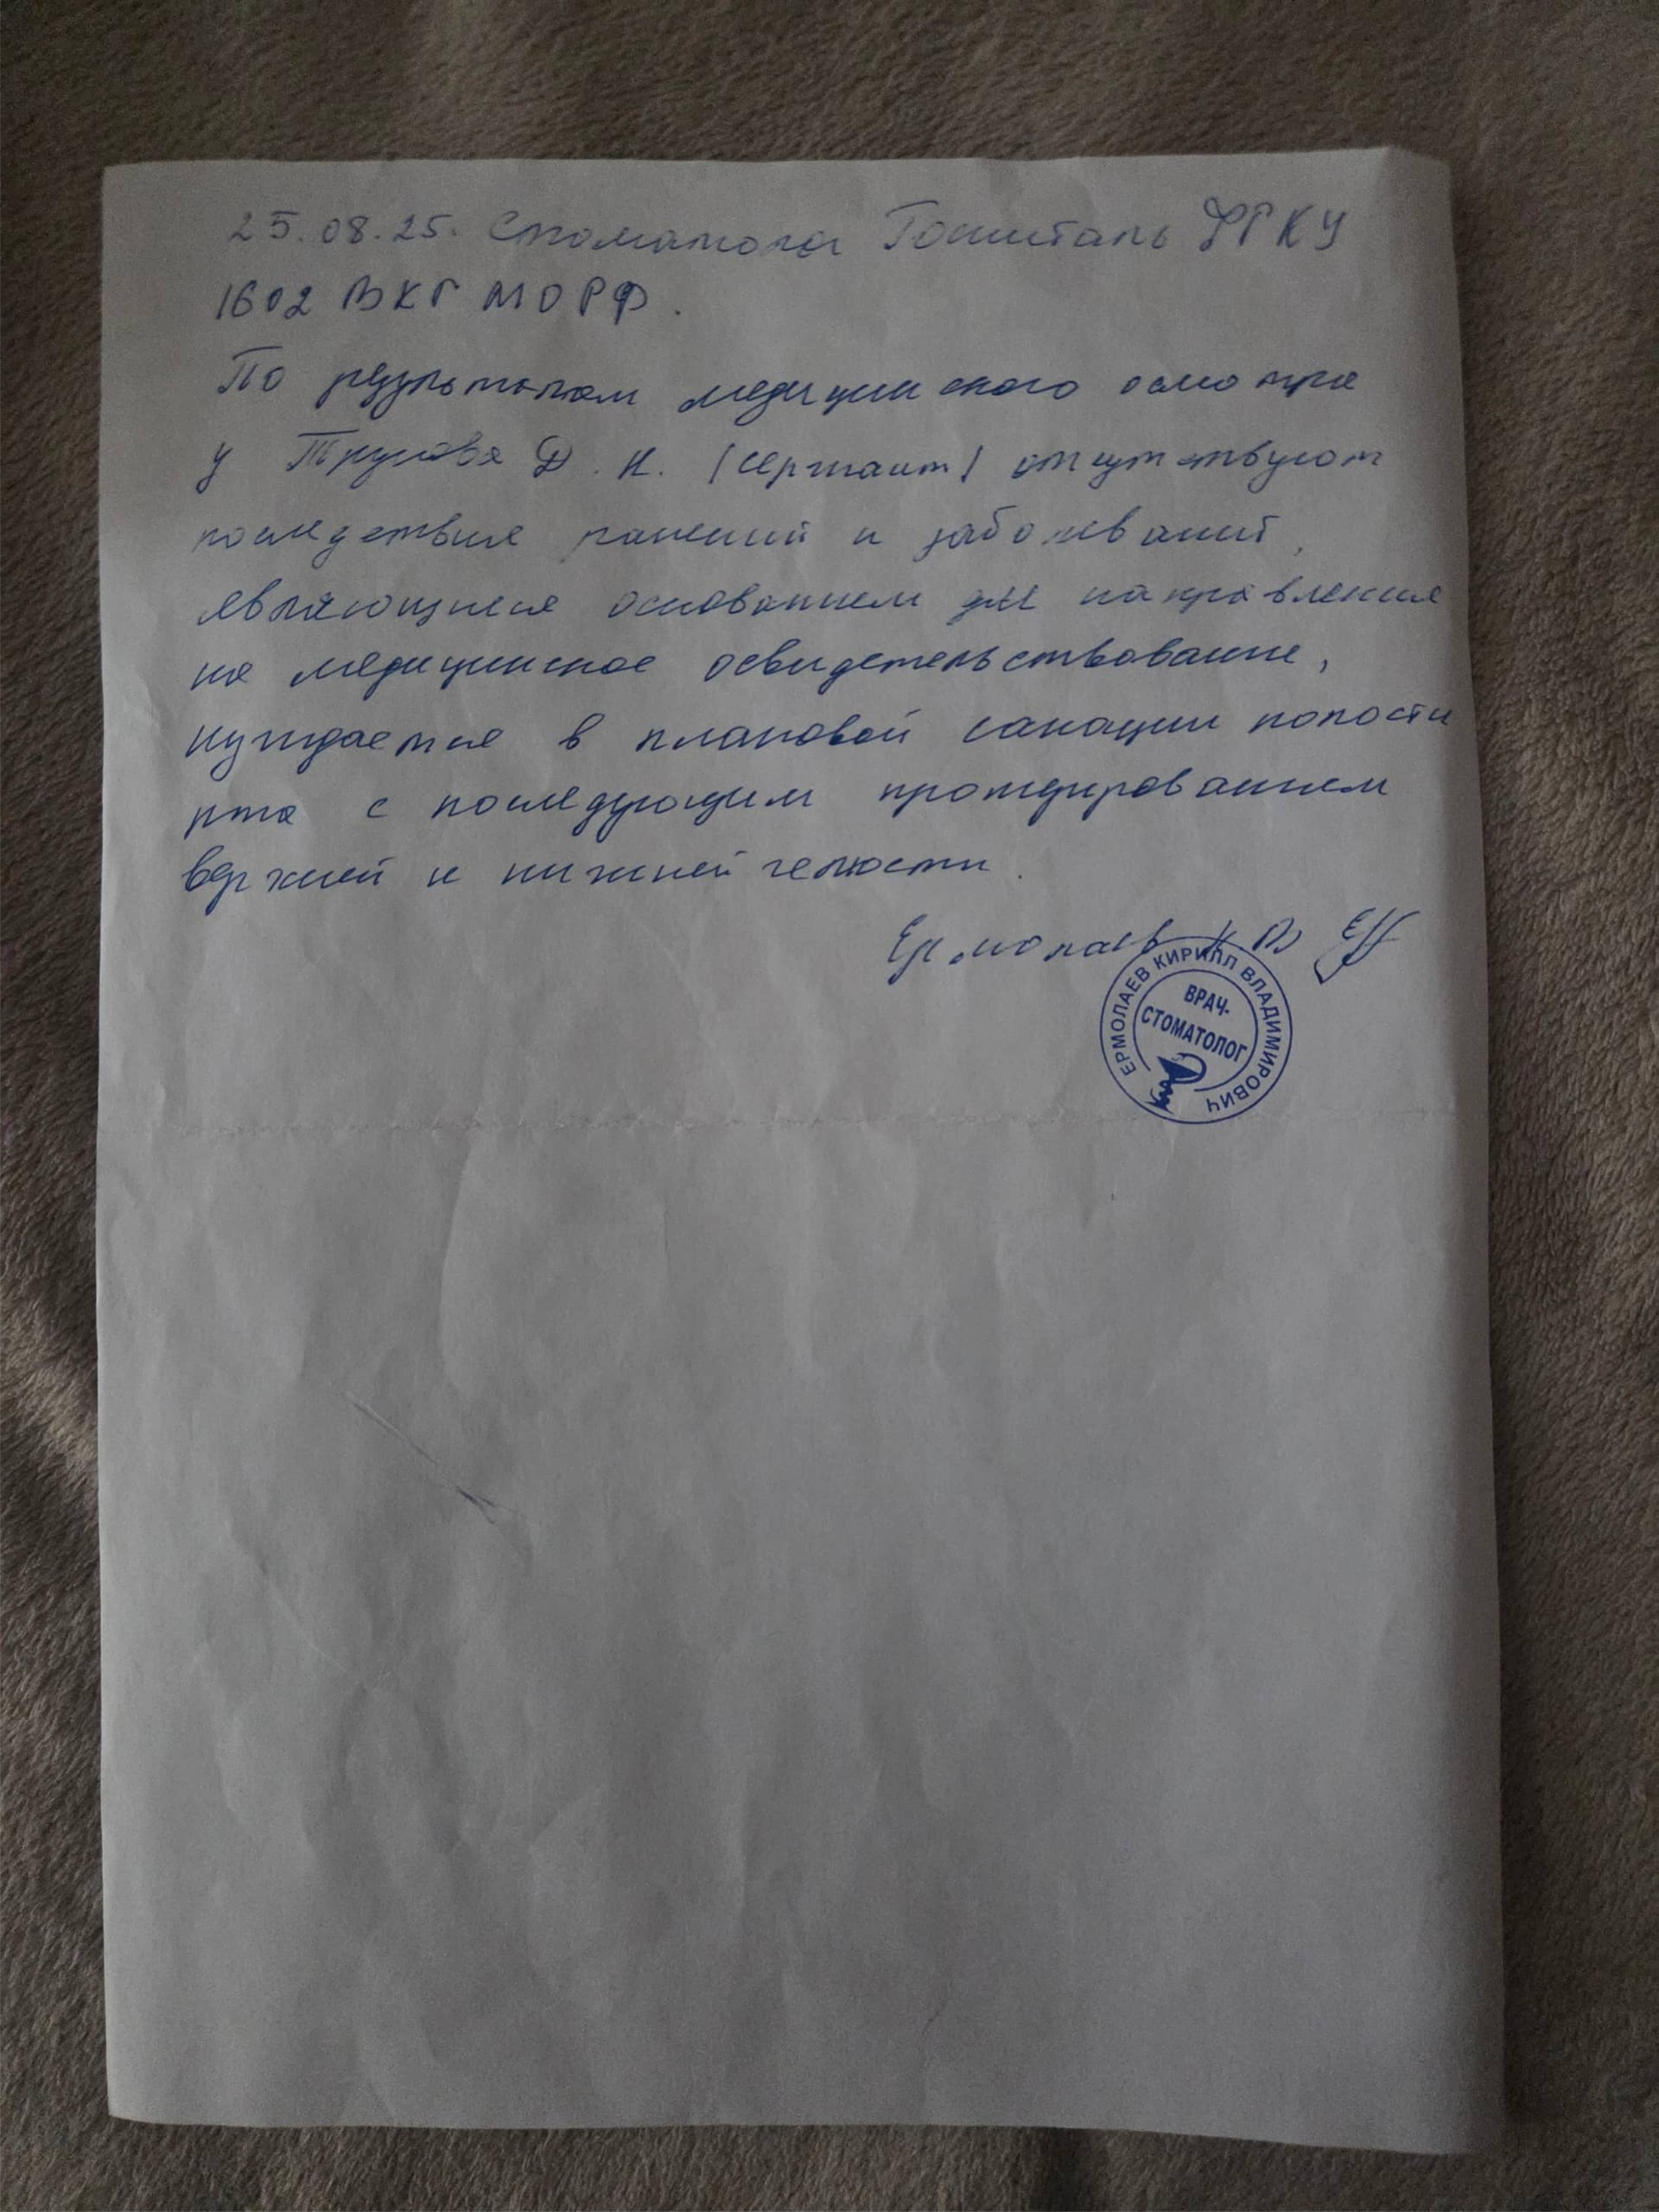 25.08.25. Стоматолог Госпиталь ФГКУ
1602 ВКГ МО РФ.
По результатам медицинского осмотра
у Д. К. (сержант) отсутствуют
последствия ранений и заболеваний,
являющиеся основанием для направления
на медицинское освидетельствование,
нуждается в плановой санации полости
рта с последующим протезированием
верхней и нижней челюсти.
Ермолаев К В
ЕРМОЛАЕВ КИРИЛЛ ВЛАДИМИРОВИЧ
ВРАЧ-
СТОМАТОЛОГ